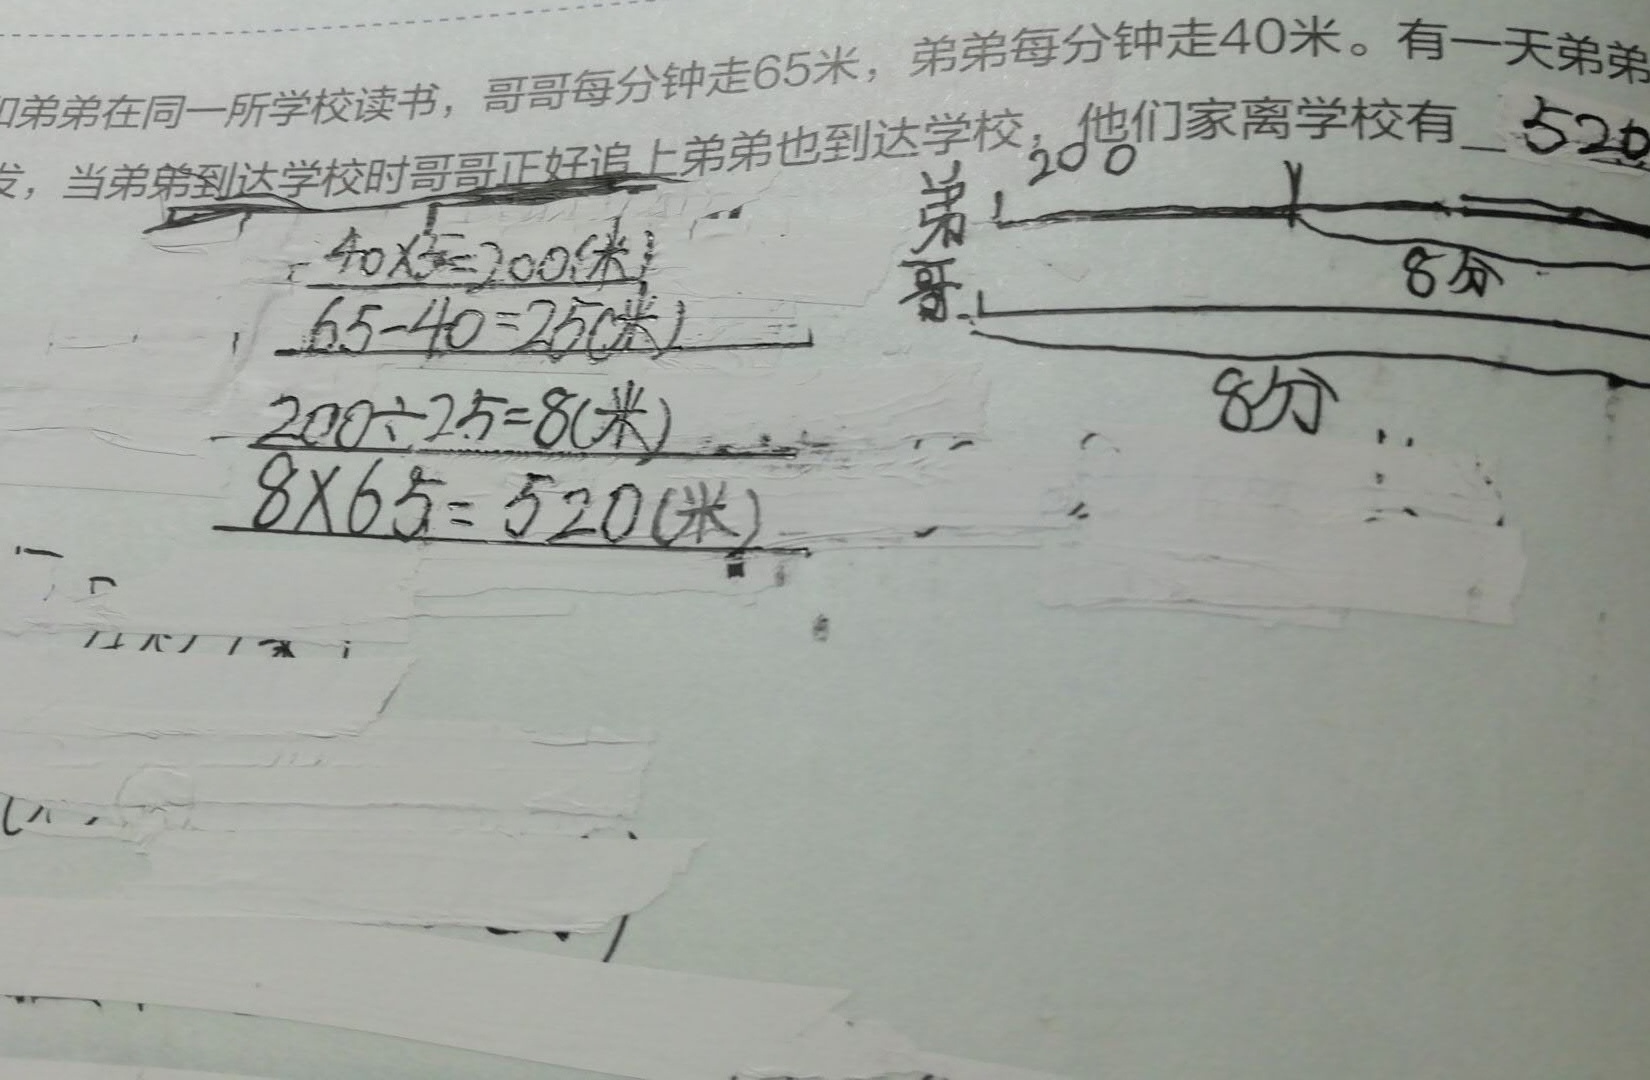 和弟弟在同一所学校读书，哥哥每分钟走65米，弟弟每分钟走40米。有一天弟弟
发，当弟弟到达学校时哥哥正好追上弟弟也到达学校，他们家离学校有 520
弟 200
8分
哥
8分
40×5=200(米)
65-40=25(米)
200÷25=8(米)
8×65=520(米)